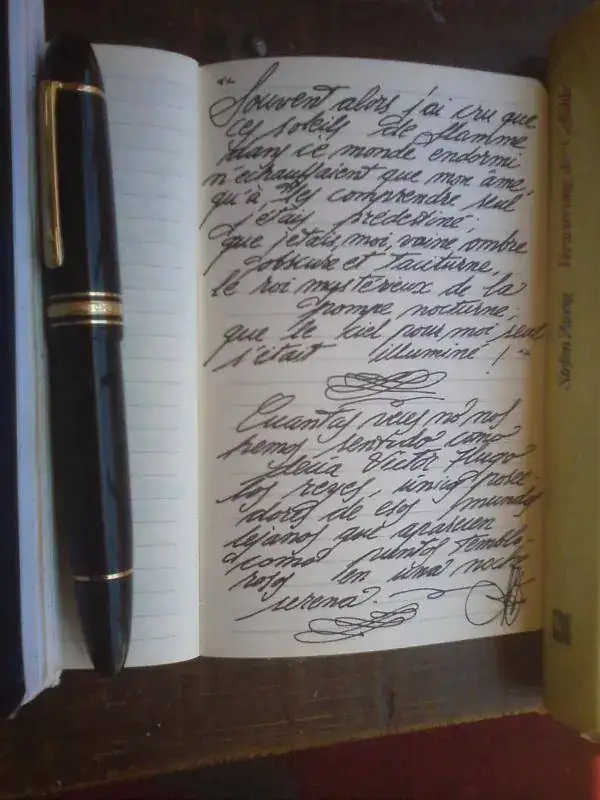 “Souvent alors j'ai cru que
ces soleils de flamme
dans ce monde endormi
n'échauffaient que mon âme,
qu'à les comprendre seul
j'étais prédestiné;
que j'étais, moi, vaine ombre
obscure et taciturne,
le roi mystérieux de la
pompe nocturne;
que le ciel pour moi seul
s'était illuminé!”
Cuantas veces no nos
hemos sentido como
decía Victor Hugo
los reyes, únicos posee-
dores de esos mundos
lejanos que aparecen
como puntos temblo-
rosos en una noche
serena.
Stefan Zweig Verwirrung der Gefühle